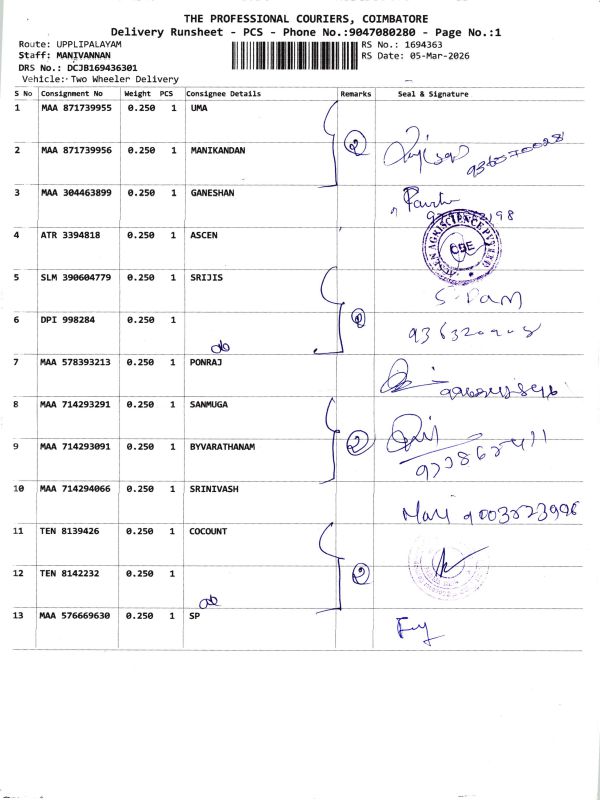 THE PROFESSIONAL COURIERS, COIMBATORE
Delivery Runsheet - PCS - Phone No.:9047080280 - Page No.:1
Route: UPPLIPALAYAM RS No.: 1694363
Staff: MANIVANNAN RS Date: 05-Mar-2026
DRS No.: DCJB169436301
Vehicle: Two Wheeler Delivery
S No Consignment No Weight PCS Consignee Details Remarks Seal & Signature
1 MAA 871739955 0.250 1 UMA
2 MAA 871739956 0.250 1 MANIKANDAN 2
3 MAA 304463899 0.250 1 GANESHAN
4 ATR 3394818 0.250 1 ASCEN
5 SLM 390604779 0.250 1 SRIJIS
6 DPI 998284 0.250 1 do 2
7 MAA 578393213 0.250 1 PONRAJ
8 MAA 714293291 0.250 1 SANMUGA
9 MAA 714293091 0.250 1 BYVARATHANAM 2
10 MAA 714294066 0.250 1 SRINIVASH
Mari 9003223996
11 TEN 8139426 0.250 1 COCOUNT
12 TEN 8142232 0.250 1 do 2
13 MAA 576669630 0.250 1 SP